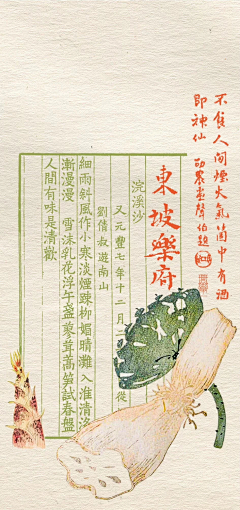 不食人間煙火氣箇中有酒
即神仙 劭農壺聲伯題
東坡樂府
浣溪沙
又元豐七年十二月二
從
劉倩叔遊南山
細雨斜風作小寒淡煙疎柳媚晴灘入淮清洛
漸漫漫 雪沫乳花浮午盞蓼茸蒿筍試春盤
人間有味是清歡